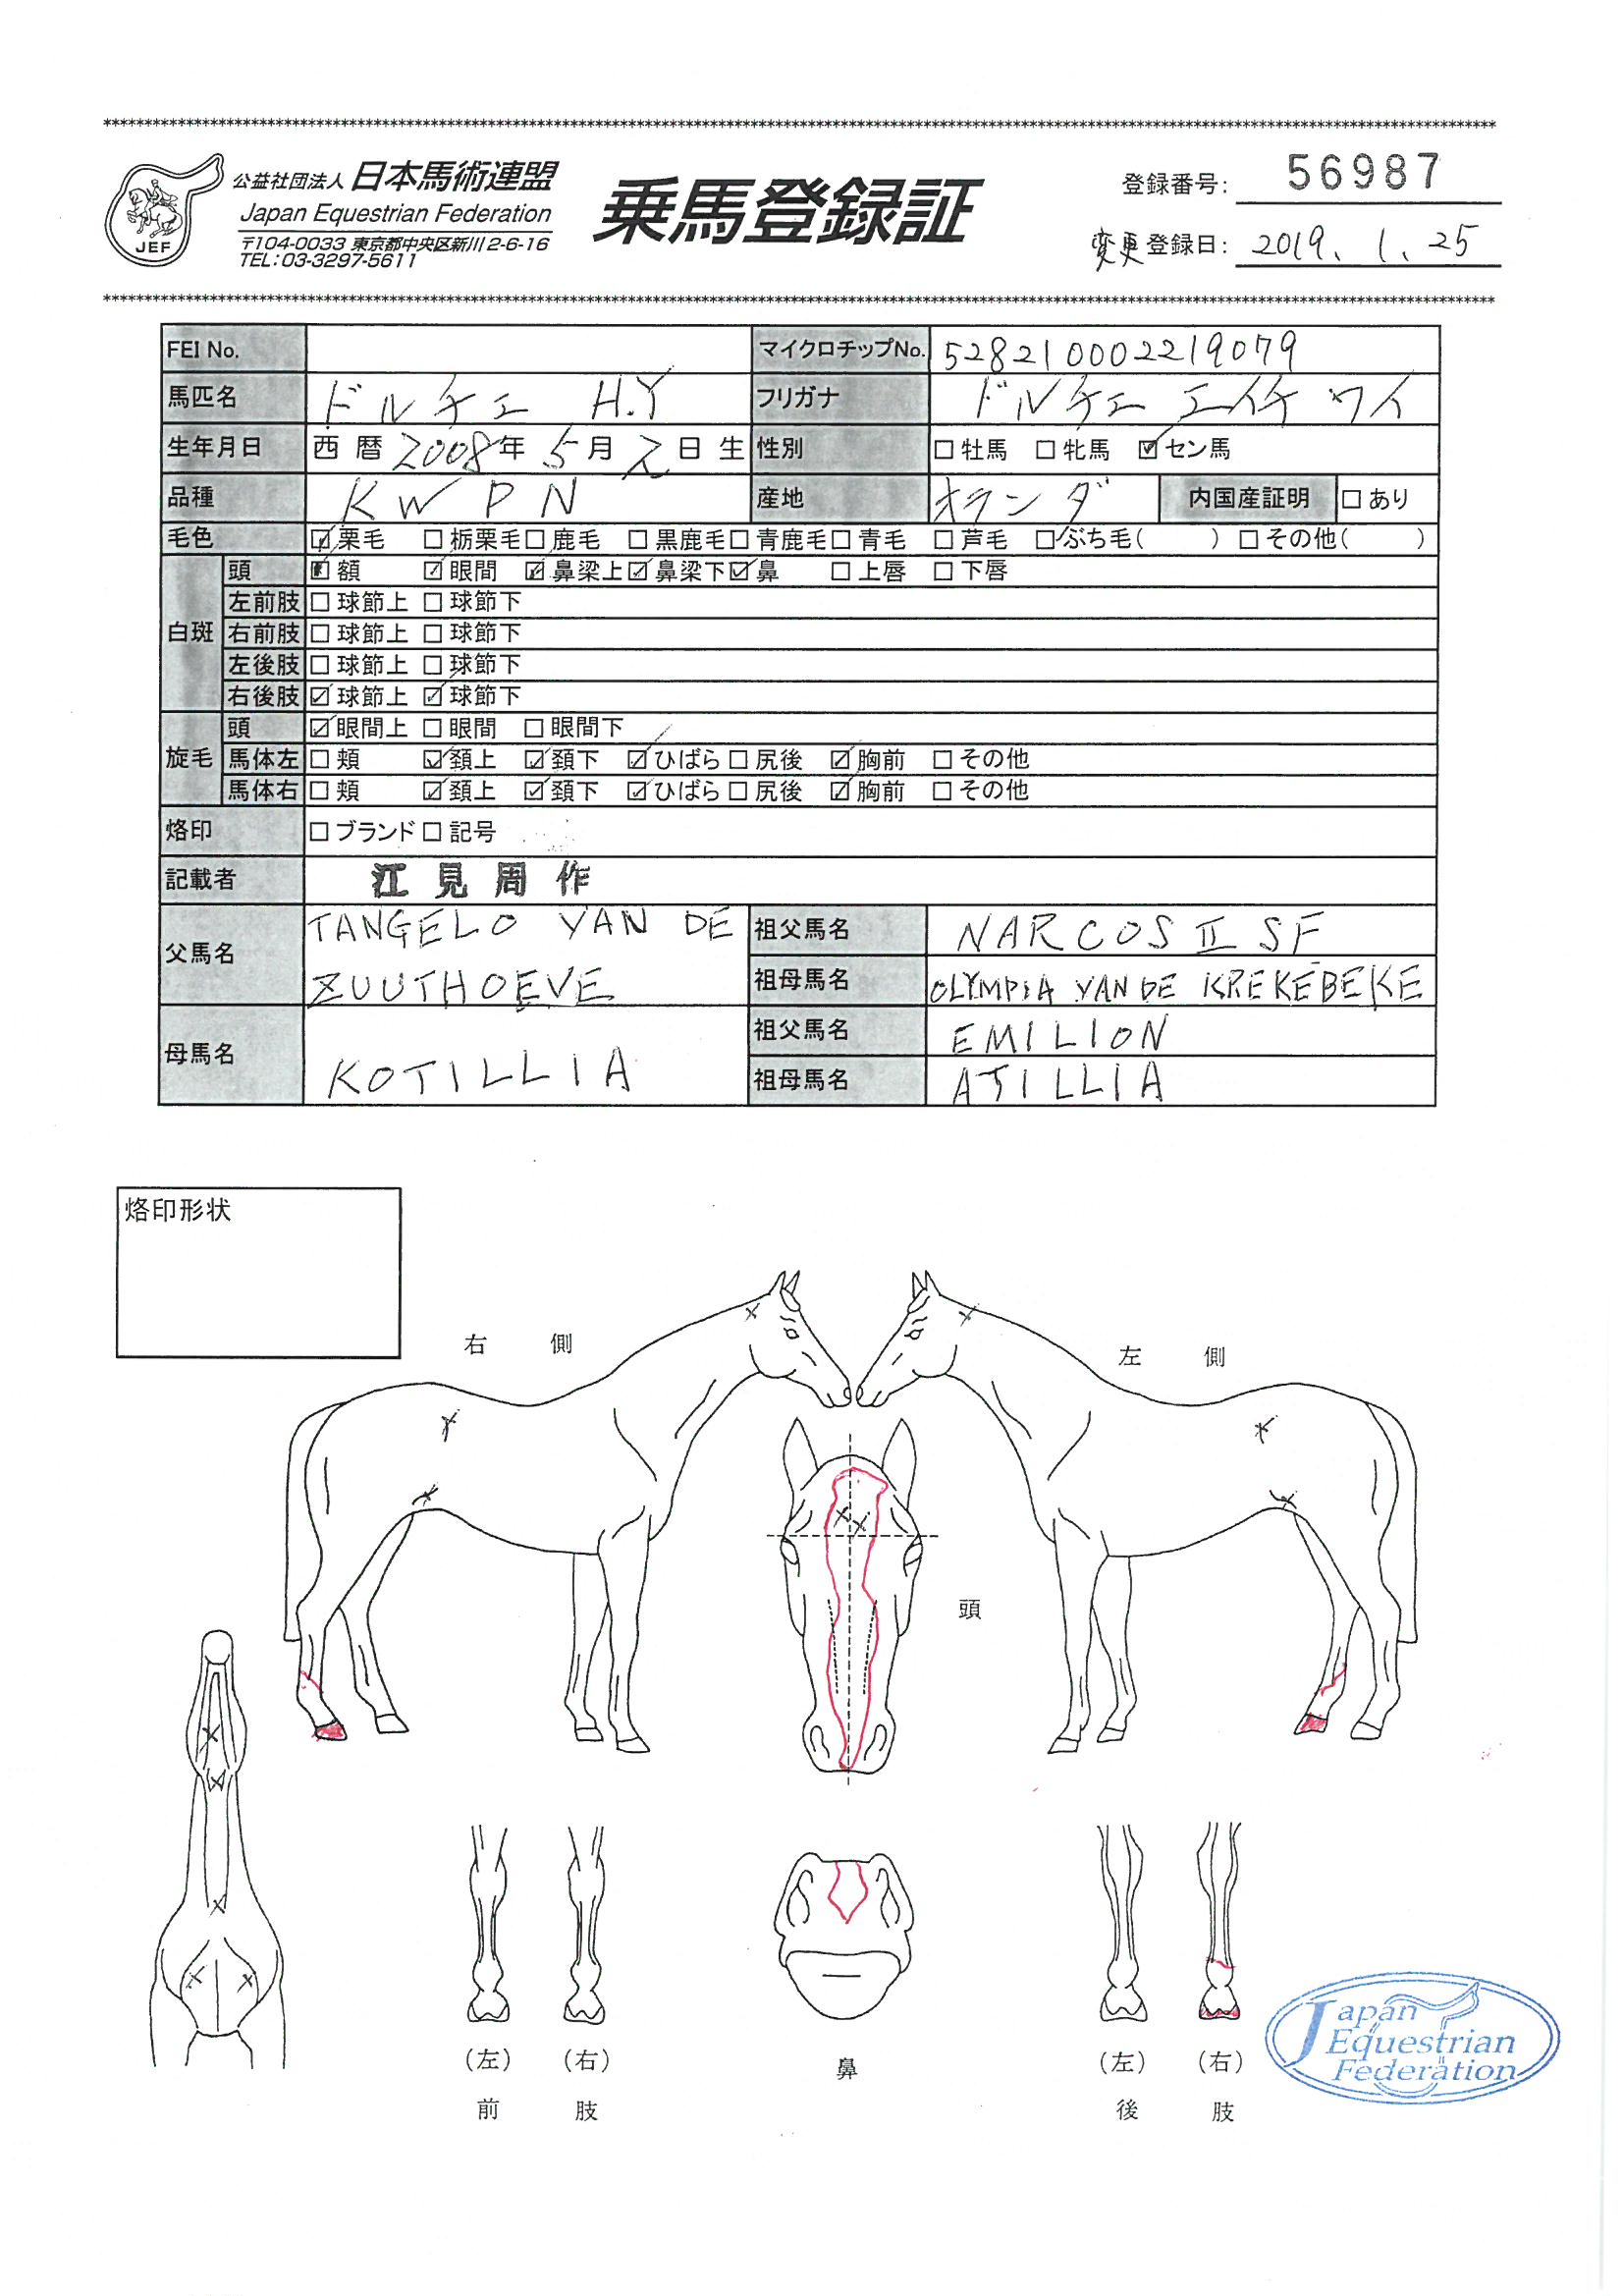 公益社団法人 日本馬術連盟
Japan Equestrian Federation
〒104-0033 東京都中央区新川2-6-16
TEL:03-3297-5611
JEF
乗馬登録証
登録番号: 56987
変更登録日: 2019. 1. 25
FEI No. マイクロチップNo. 528210002219079
馬匹名 ドルチェ H.Y フリガナ ドルチェ エイチ ワイ
生年月日 西暦 2008年 5月 2日生 性別 □牡馬 □牝馬 ☑セン馬
品種 KWPN 産地 オランダ 内国産証明 □あり
毛色 ☑栗毛 □栃栗毛 □鹿毛 □黒鹿毛 □青鹿毛 □青毛 □芦毛 □ぶち毛( ) □その他( )
白斑 頭 ☑額 ☑眼間 ☑鼻梁上 ☑鼻梁下 ☑鼻 □上唇 □下唇
左前肢 □球節上 □球節下
右前肢 □球節上 □球節下
左後肢 □球節上 □球節下
右後肢 ☑球節上 ☑球節下
旋毛 頭 ☑眼間上 □眼間 □眼間下
馬体左 □頬 ☑頚上 ☑頚下 ☑ひばら □尻後 ☑胸前 □その他
馬体右 □頬 ☑頚上 ☑頚下 ☑ひばら □尻後 ☑胸前 □その他
烙印 □ブランド □記号
記載者 江見周作
父馬名 TANGELO VAN DE ZUUTHOEVE
祖父馬名 NARCOS II SF
祖母馬名 OLYMPIA VAN DE KREKEBEKE
母馬名 KOTILLIA
祖父馬名 EMILION
祖母馬名 ATILLIA
烙印形状
右側
左側
頭
(左) (右)
前肢
鼻
(左) (右)
後肢
Japan
Equestrian
Federation